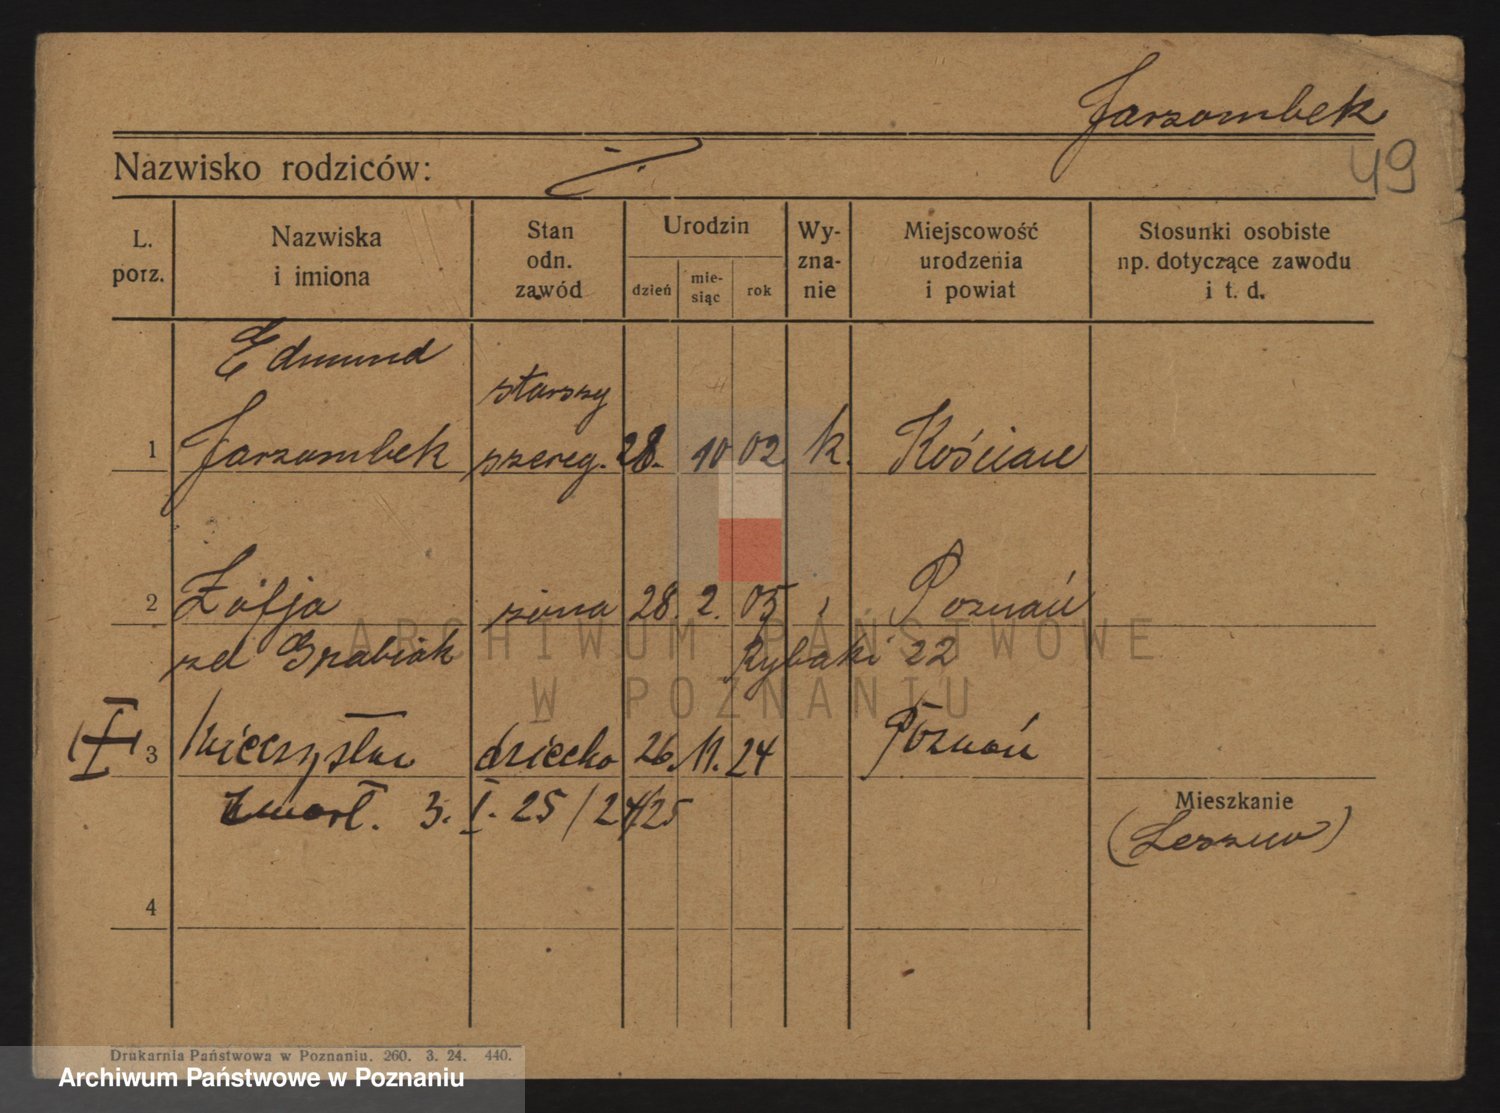 Jarzombek
49
Nazwisko rodziców: Ż.
L. porz.
Nazwiska i imiona
Stan odn. zawód
Urodzin
dzień
mie-
siąc
rok
Wy-
zna-
nie
Miejscowość
urodzenia
i powiat
Stosunki osobiste
np. dotyczące zawodu
i t. d.
Edmund
starszy
1 Jarzombek szereg. 28. 10 02 k. Kościan
2 Zofja żona 28. 2. 05 Poznań
zd Grabiak Rybaki 22
3 Mieczysław dziecko 26. 11. 24 Poznań
zmarł. 3. I. 25 / 24/25
Mieszkanie
(Leszno)
4
Drukarnia Państwowa w Poznaniu. 260. 3. 24. 440.
ARCHIWUM PAŃSTWOWE
W POZNANIU
Archiwum Państwowe w Poznaniu